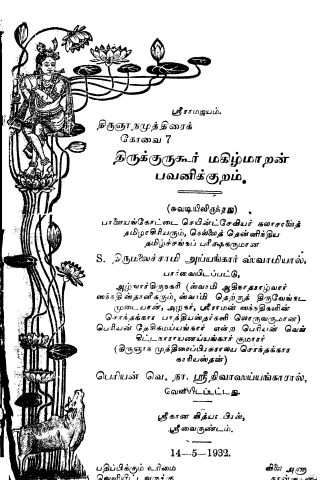 ஸ்ரீராமஜயம்.
திருஞானமுத்திரைக்
கோவை 7
திருக்குருகூர் மகிழ்மாறன்
பவனிக்குறம்.
(சுவடியிலிருந்தது)
பாளையங்கோட்டை செயின்ட்சேவியர் கலாசாலைத்
தமிழாசிரியரும், நெல்லைத் தென்னிந்திய
தமிழ்ச்சங்கப் பரீக்ஷகருமான
S. திருமலைச்சாமி அய்யங்கார் ஸ்வாமியால்,
பார்வையிடப்பட்டு,
ஆழ்வார்திருநகரி (ஸ்வாமி ஆதிநாதாழ்வார்
ஸந்நதிஸ்தானீகரும், ஸ்வாமி தெற்குத் திருவேங்கட
முடையான், அழகர், ஸ்ரீராமன் ஸந்நதிகளின்
சொந்தக்கார பாத்தியஸ்தர்களி லொருவருமான)
பெரியன் தேசிகமய்யங்கார் என்ற பெரியன் வெள்
கிட்டநாராயணய்யங்கார் குமாரர்
(திருஞான முத்திரைப்பிரசாலய சொந்தக்கார
காரியஸ்தன்)
பெரியன் வெ. நா. ஸ்ரீநிவாஸய்யங்காரால்,
வெளியிடப்பட்டது.
ஸ்ரீகான வித்யா பிரஸ்,
ஸ்ரீவைகுண்டம்.
14—5—1932.
பதிப்பிக்கும் உரிமை விலை அணா